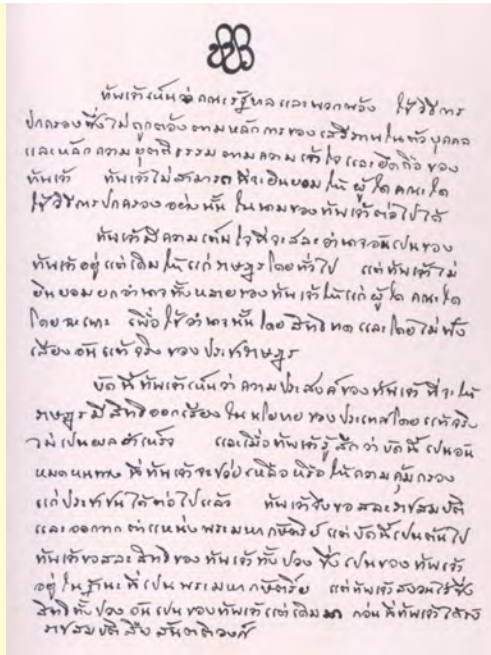 ข้าพเจ้าเห็นว่าคณะรัฐบาลและพวกพ้อง ใช้วิธีการ
ปกครองซึ่งไม่ถูกต้องตามหลักการของเสรีภาพในตัวบุคคล
และหลักความยุตติธรรมตามความเข้าใจและยึดถือของ
ข้าพเจ้า ข้าพเจ้าไม่สามารถที่จะยินยอมให้ผู้ใดคณะใด
ใช้วิธีการปกครองอย่างนั้น ในนามของข้าพเจ้าต่อไปได้
ข้าพเจ้ามีความเต็มใจที่จะสละอำนาจอันเป็นของ
ข้าพเจ้าอยู่แต่เดิมให้แก่ราษฎรโดยทั่วไป แต่ข้าพเจ้าไม่
ยินยอมยกอำนาจทั้งหลายของข้าพเจ้าให้แก่ผู้ใด คณะใด
โดยฉะเพาะ เพื่อใช้อำนาจนั้นโดยสิทธิขาด และโดยไม่ฟัง
เสียงอันแท้จริงของประชาราษฎร
บัดนี้ข้าพเจ้าเห็นว่าความประสงค์ของข้าพเจ้าที่จะให้
ราษฎรมีสิทธิออกเสียงในนโยบายของประเทศโดยแท้จริง
ไม่เป็นผลสำเร็จ และเมื่อข้าพเจ้ารู้สึกว่าบัดนี้เป็นอัน
หมดหนทางที่ข้าพเจ้าจะช่วยเหลือหรือให้ความคุ้มครอง
แก่ประชาชนได้ต่อไปแล้ว ข้าพเจ้าจึงขอสละราชสมบัติ
และออกจากตำแหน่งพระมหากษัตริย์ แต่บัดนี้เป็นต้นไป
ข้าพเจ้าขอสละสิทธิของข้าพเจ้าทั้งปวง ซึ่งเป็นของข้าพเจ้า
อยู่ในฐานะที่เป็นพระมหากษัตริย์ แต่ข้าพเจ้าสงวนไว้ซึ่ง
สิทธิทั้งปวงอันเป็นของข้าพเจ้าแต่เดิมมา ก่อนที่ข้าพเจ้าได้รับ
ราชสมบัติสืบสันตติวงศ์